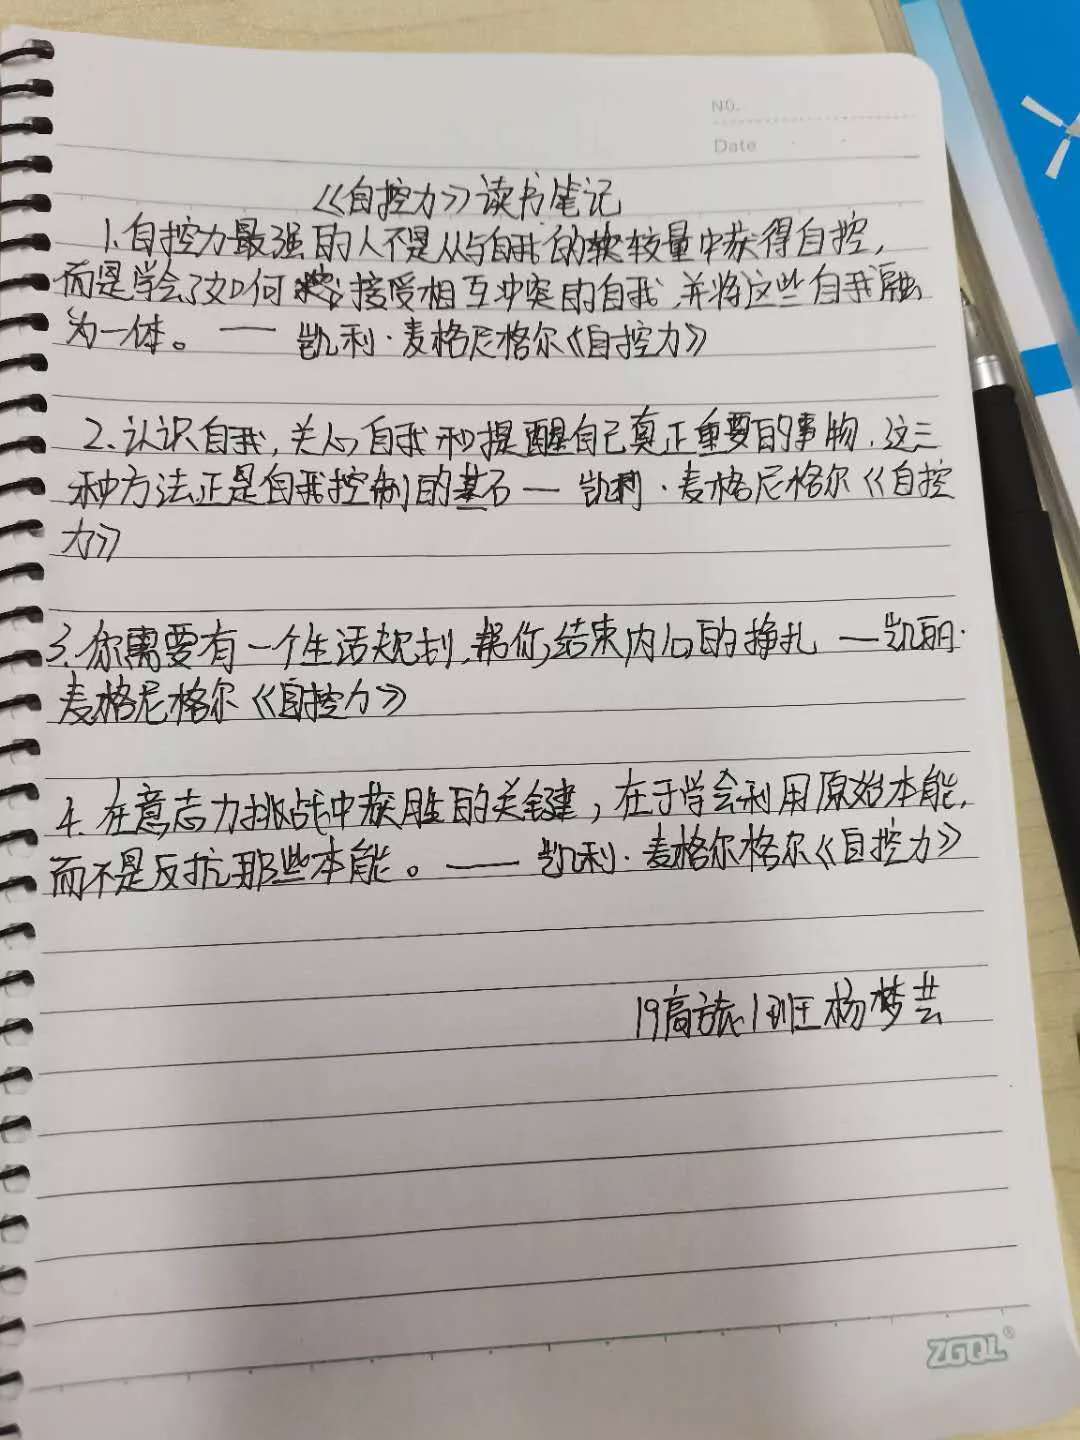 NO.
Date
《自控力》读书笔记
1.自控力最强的人不是从与自我的较量中获得自控，
而是学会了如何接受相互冲突的自我,并将这些自我融
为一体。——凯利·麦格尼格尔《自控力》
2.认识自我,关心自我和提醒自己真正重要的事物.这三
种方法正是自我控制的基石—凯利·麦格尼格尔《自控
力》
3.你需要有一个生活规划,帮你结束内心的挣扎—凯丽·
麦格尼格尔《自控力》
4.在意志力挑战中获胜的关键，在于学会利用原始本能,
而不是反抗那些本能。——凯利·麦格尔格尔《自控力》
19高旅1班杨梦芸
ZGQL®